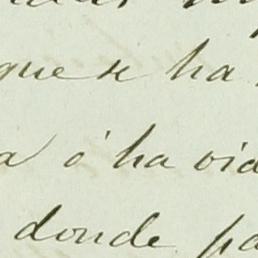 que se ha
a ó ha oid
donde pa